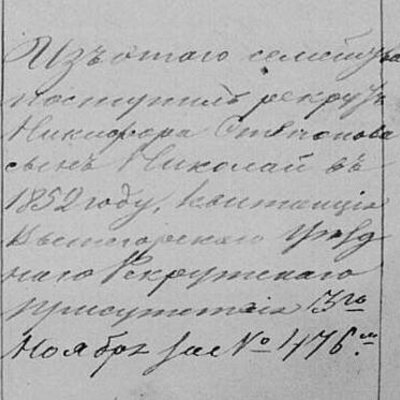 Изъ этаго семейства
поступилъ рекрутъ
Никифора Степанова
сынъ Николай въ
1852 году, квитанція
Вытегорскаго Уезд
наго Рекрутскаго
присутствія 3го
Ноября за № 476.м